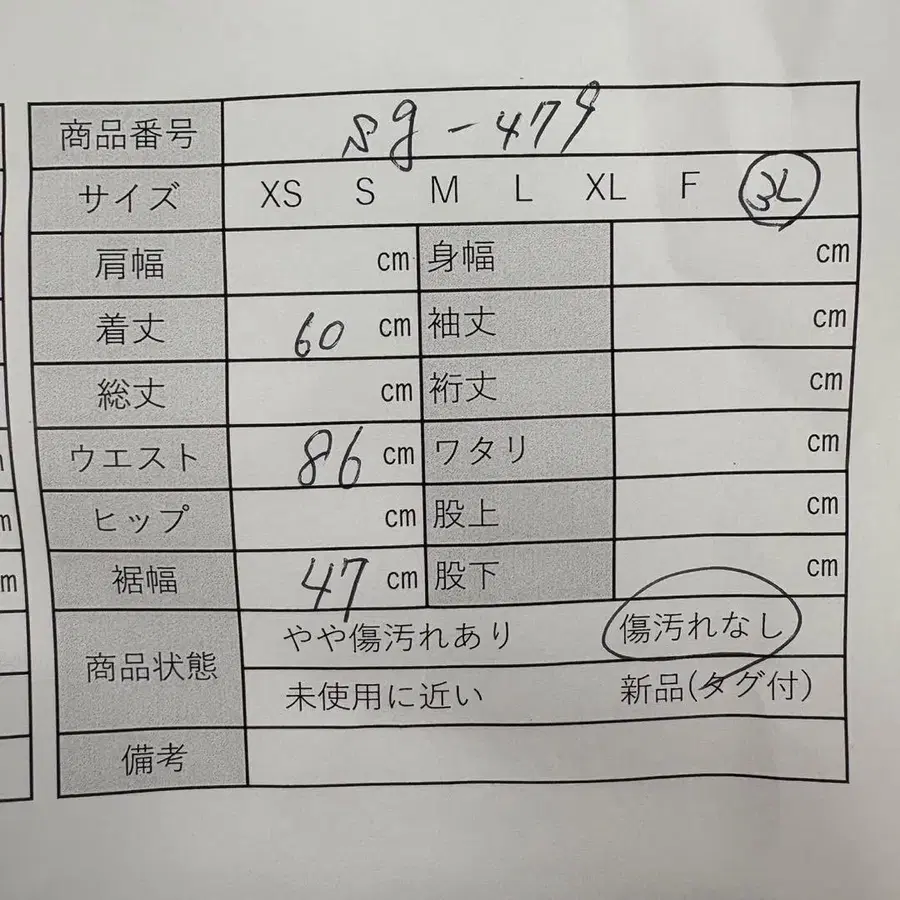 商品番号 sg-479
サイズ XS S M L XL F 3L
肩幅 cm 身幅 cm
着丈 60 cm 袖丈 cm
総丈 cm 裄丈 cm
ウエスト 86 cm ワタリ cm
ヒップ cm 股上 cm
裾幅 47 cm 股下 cm
商品状態 やや傷汚れあり 傷汚れなし
未使用に近い 新品(タグ付)
備考